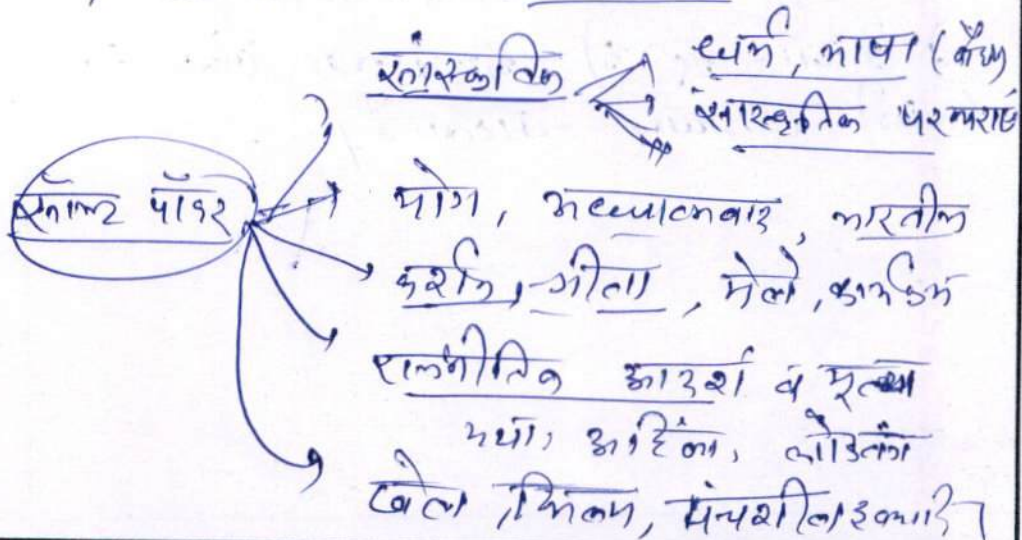 सांस्कृतिक
धर्म, भाषा (बौद्ध)
सांस्कृतिक परम्पराएं
सॉफ्ट पॉवर
योग, अध्यात्मवाद, भारतीय
दर्शन, गीता, मेले, कार्यक्रम
राजनीतिक आदर्श व मूल्य
यथा, अहिंसा, लोकतंत्र
खेल, फिल्म, पंचशील इत्यादि।